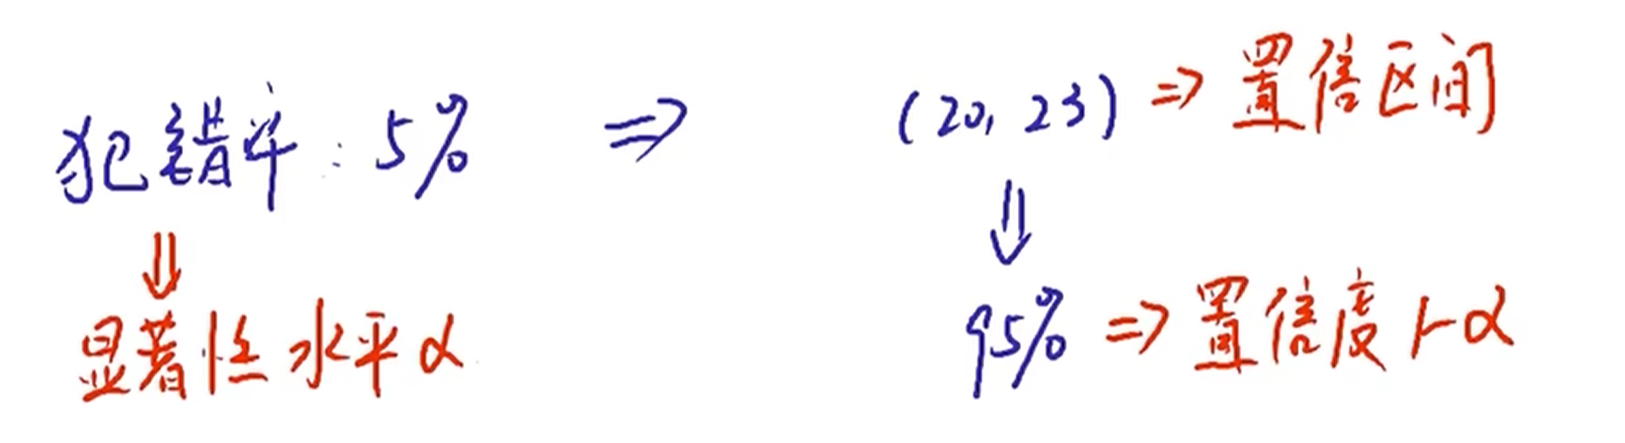 犯错率：5% ⇒ (20, 23) ⇒ 置信区间
⇓ ⇓
显著性水平α 95% ⇒ 置信度 1-α